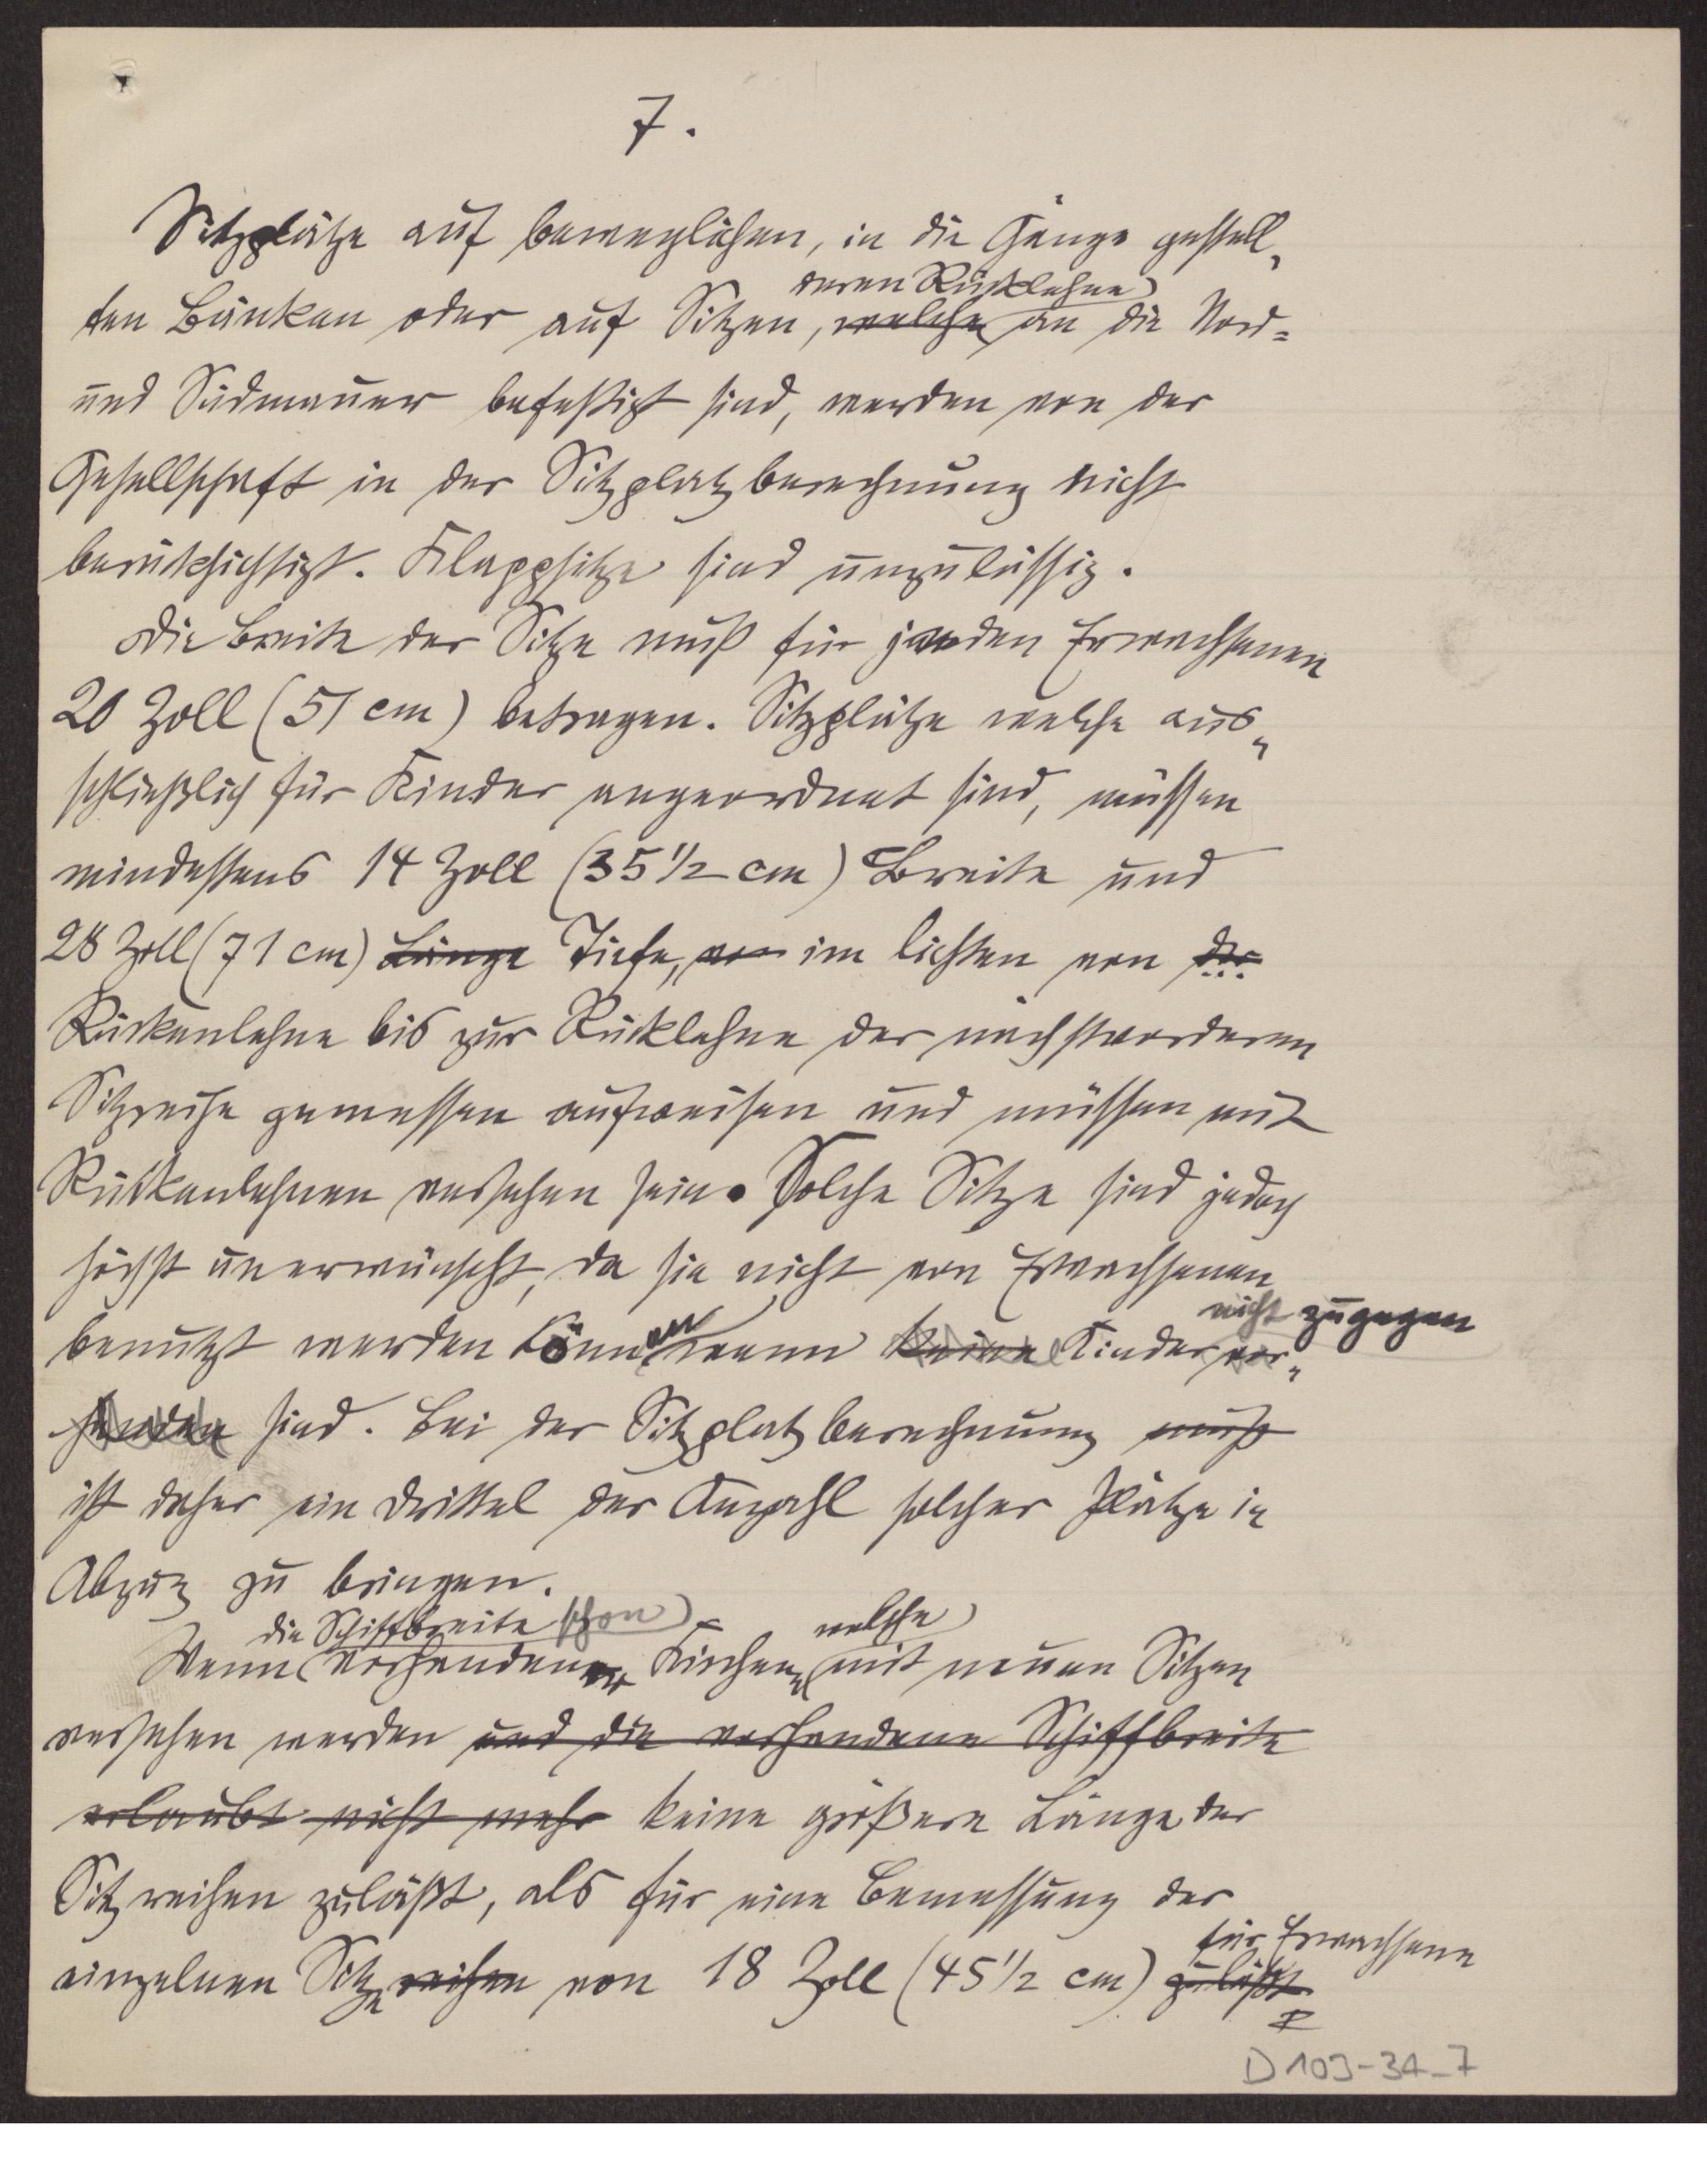 7.
Sitzplätze auf beweglichen, in die Gänge gestell„
deren Rücklehne
ten Bänken oder auf Sitzen, welche an die Nord=
und Südmauer befestigt sind, werden von der
Gesellschaft in der Sitzplatzberechnung nicht
berücksichtigt. Klappsitze sind unzulässig.
Die Breite der Sitze muß für jeden Erwachsenen
20 Zoll (51 cm) betragen. Sitzplätze welche aus„
schließlich für Kinder angeordnet sind, müssen
mindestens 14 Zoll (35 1/2 cm) Breite und
28 Zoll (71 cm) Länge Tiefe, von im lichten von der
Rückenlehne bis zur Rücklehne der nächstvorderen
Sitzreihe gemessen aufweisen und müssen mit
Rückenlehnen versehen sein. Solche Sitze sind jedoch
höchst unerwünscht, da sie nicht von Erwachsenen
nicht zugegen
benutzt werden können wenn keine Kinder vor„
handen sind. Bei der Sitzplatzberechnung muß
ist daher ein Drittel der Anzahl solcher Plätze in
Abzug zu bringen.
die Schiffbreite schon welche
Wenn vorhandener Kirchen, mit neuen Sitzen
versehen werden und die vorhandene Schiffbreite
erlaubt nicht mehr keine größere Länge der
Sitzreihen zuläßt, als für eine Bemessung der
für Erwachsene
einzelnen Sitze reihen von 18 Zoll (45 1/2 cm) zuläßt
D 103-34_7